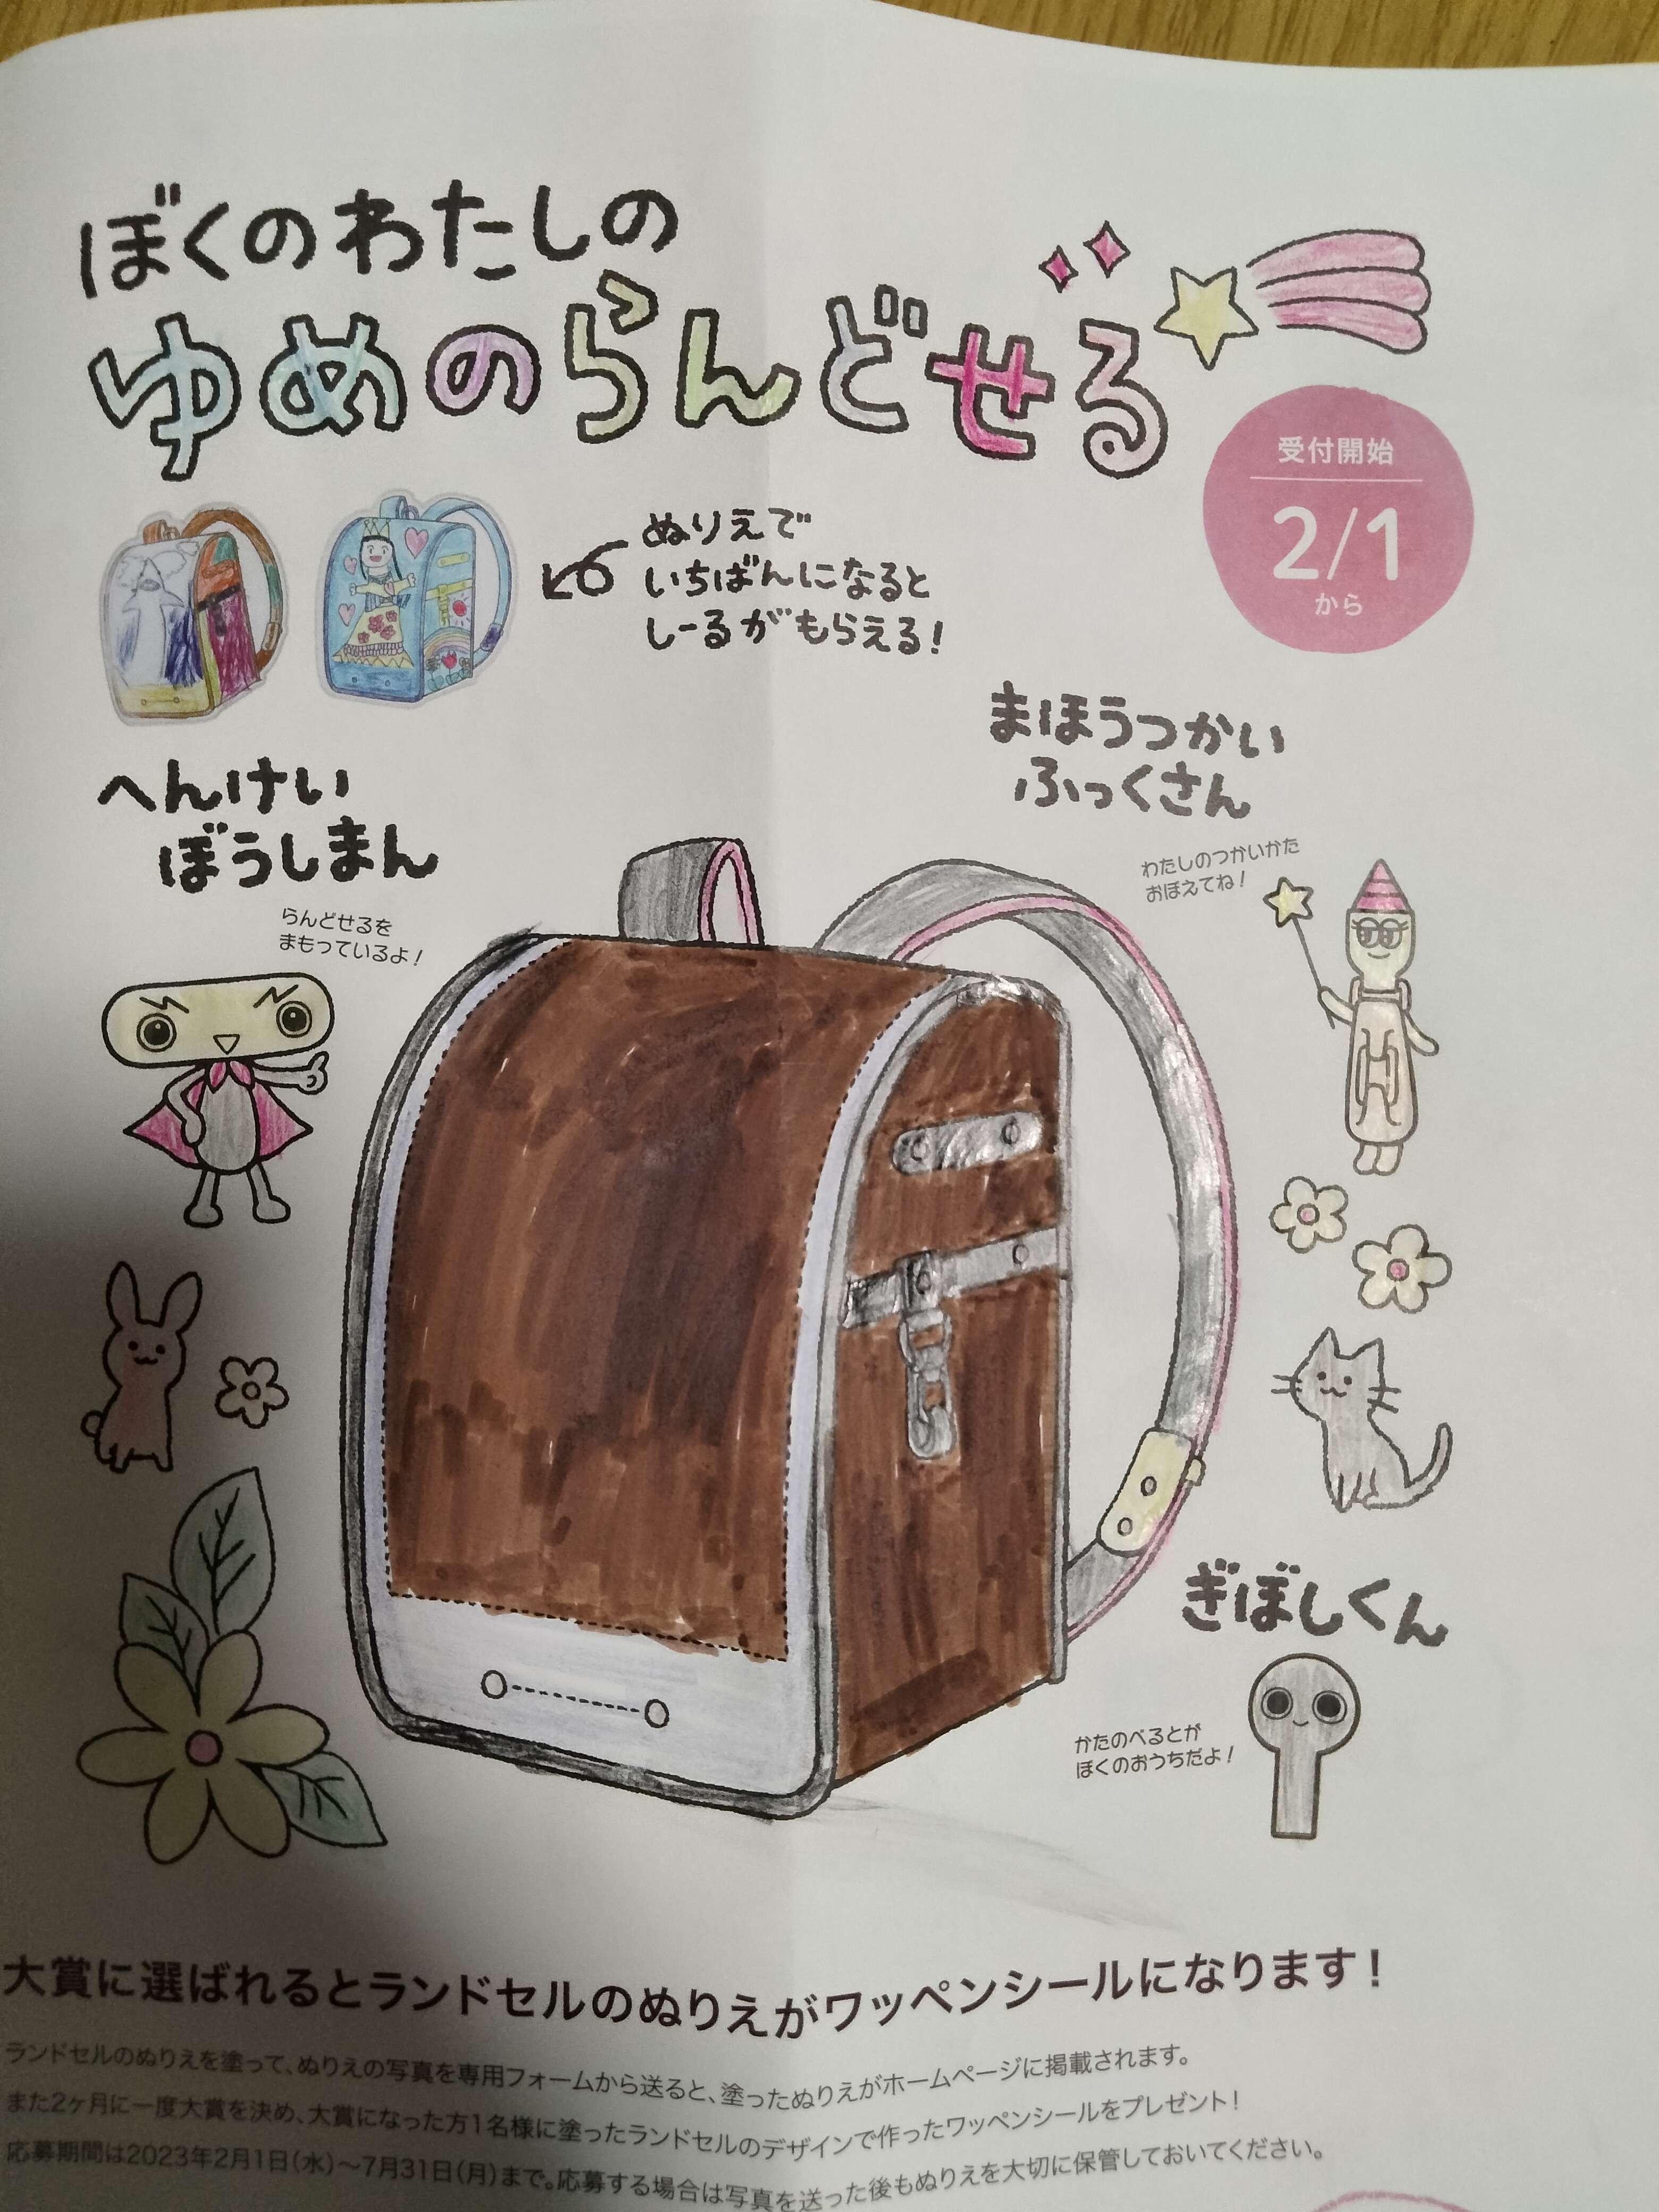 ぼくのわたしの
ゆめのらんどせる
受付開始
2/1
から
ぬりえで
いちばんになると
しーるがもらえる!
まほうつかい
ふっくさん
わたしのつかいかた
おぼえてね!
へんけい
ぼうしまん
らんどせるを
まもっているよ!
ぎぼしくん
かたのべるとが
ぼくのおうちだよ!
大賞に選ばれるとランドセルのぬりえがワッペンシールになります!
ランドセルのぬりえを塗って、ぬりえの写真を専用フォームから送ると、塗ったぬりえがホームページに掲載されます。
また2ヶ月に一度大賞を決め、大賞になった方1名様に塗ったランドセルのデザインで作ったワッペンシールをプレゼント!
応募期間は2023年2月1日(水)〜7月31日(月)まで。応募する場合は写真を送った後もぬりえを大切に保管しておいてください。